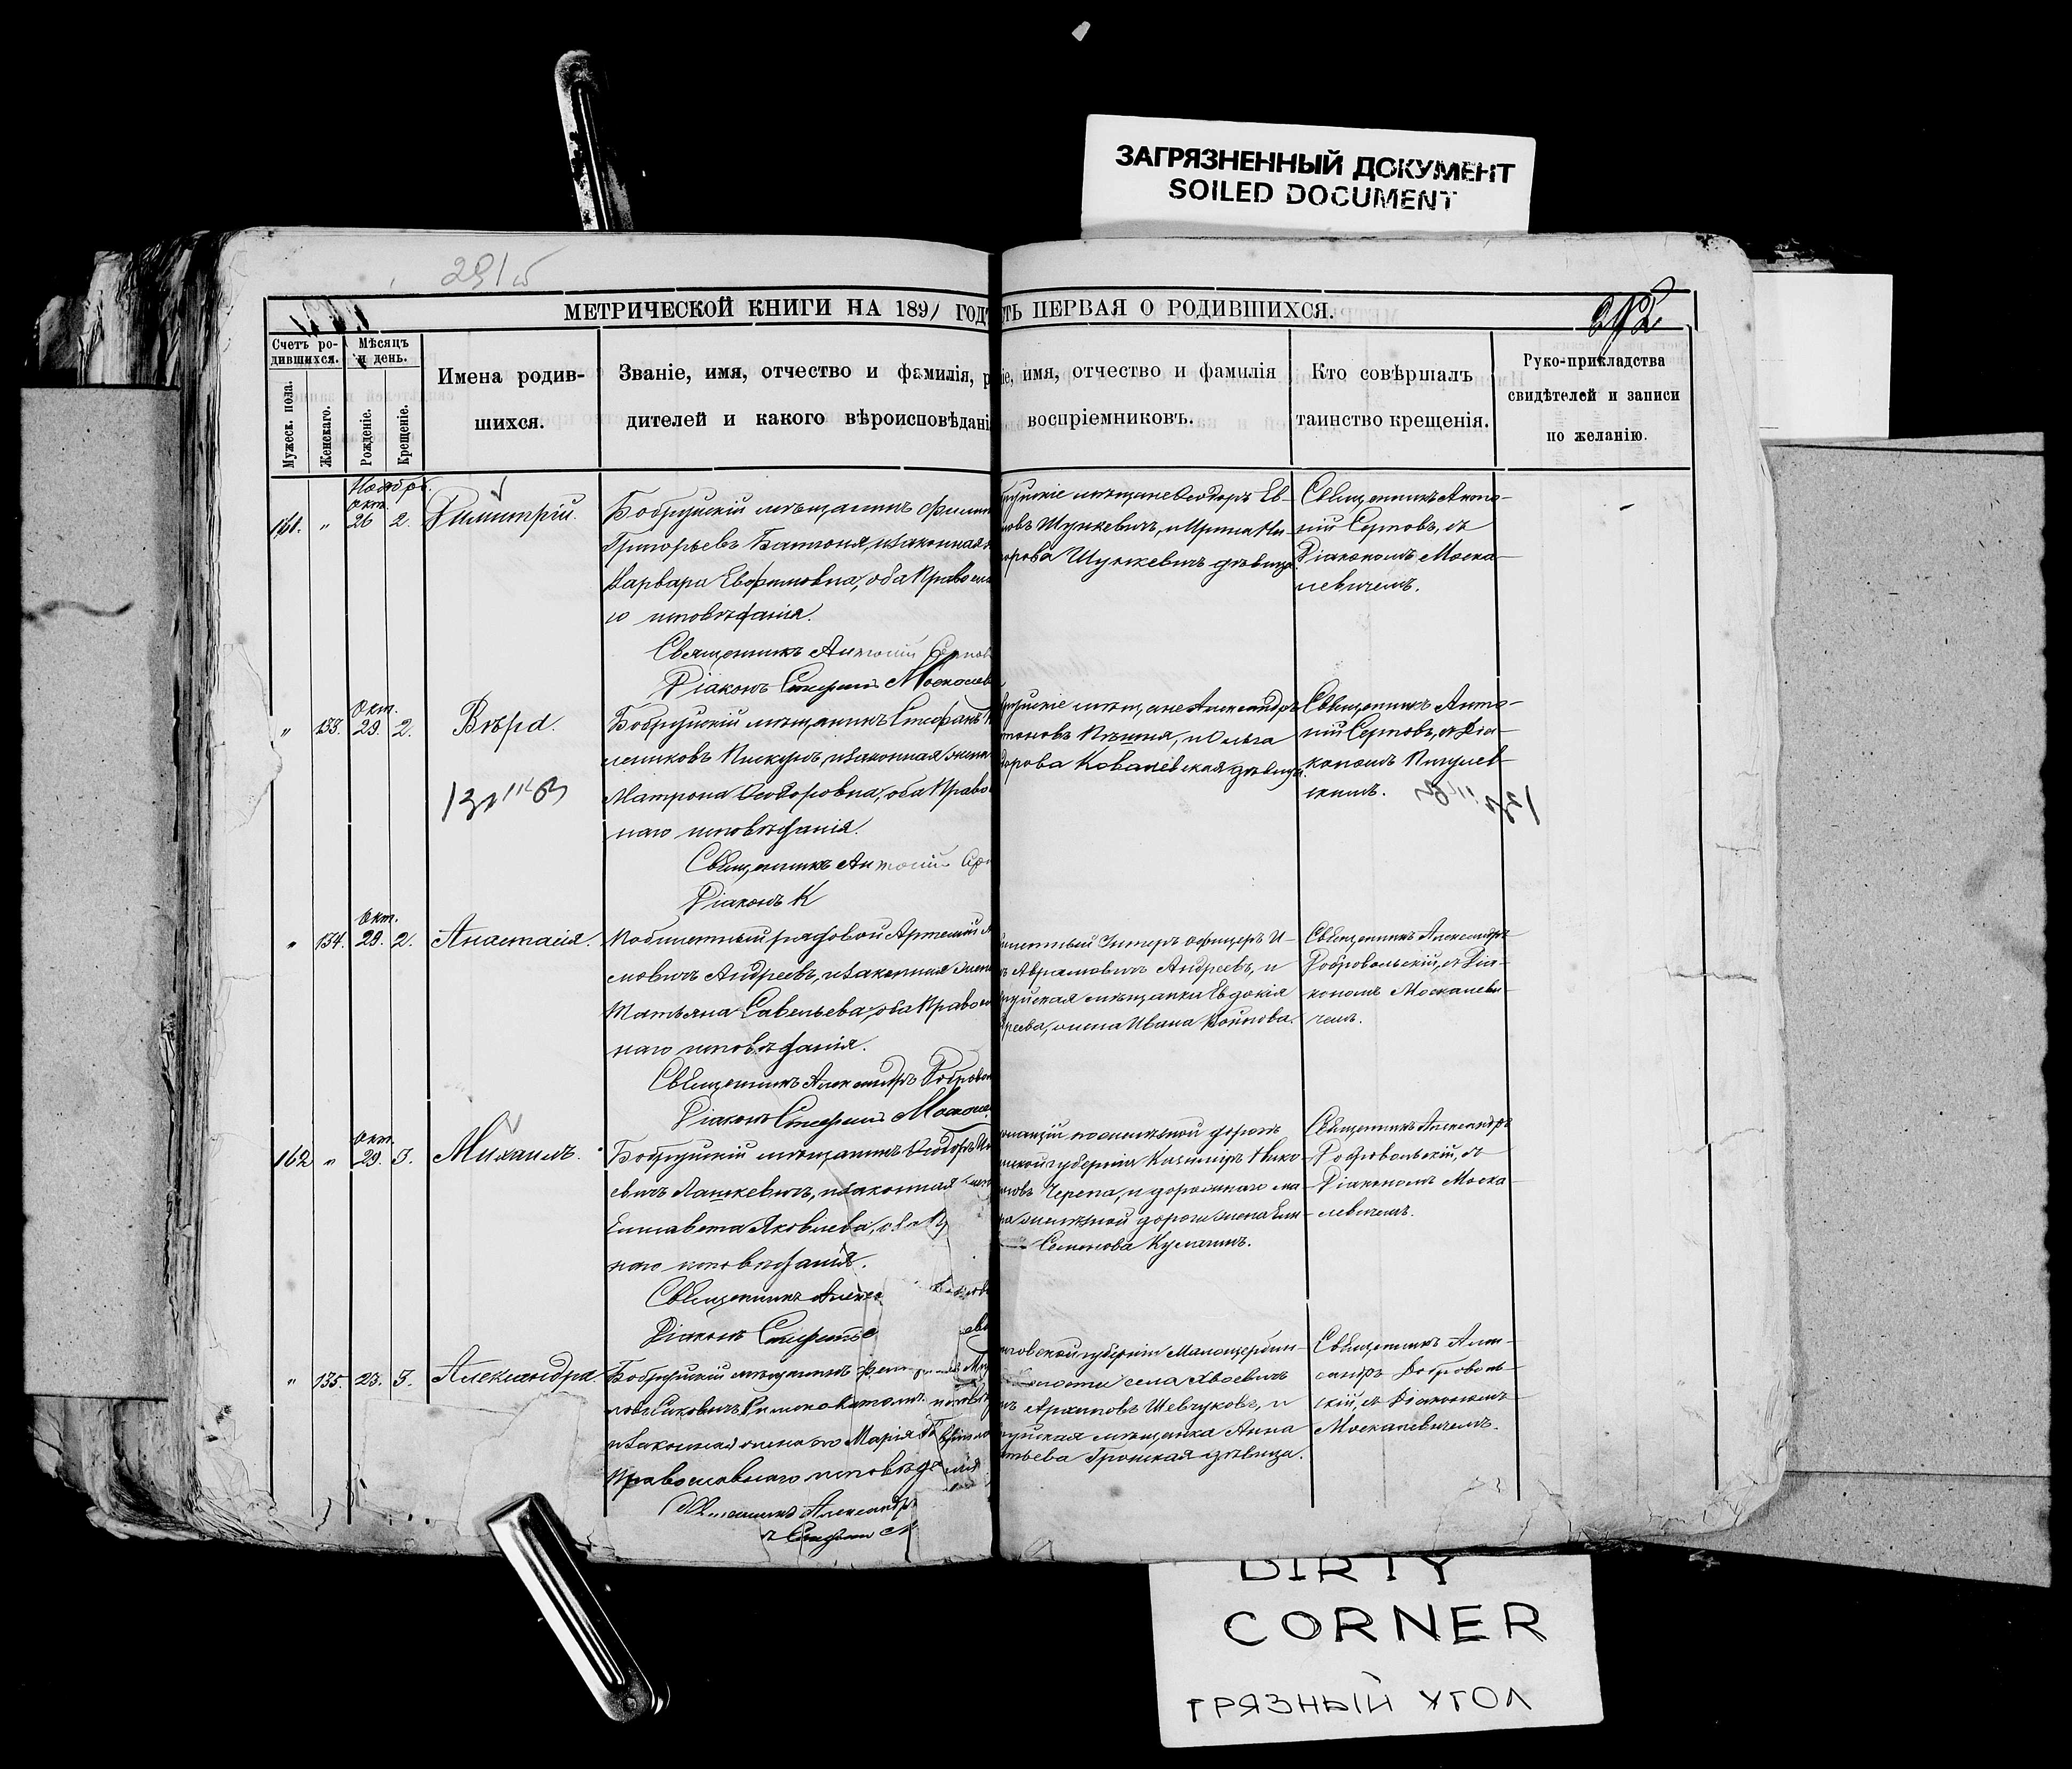 ЗАГРЯЗНЕННЫЙ ДОКУМЕНТ
SOILED DOCUMENT
291
МЕТРИЧЕСКОЙ КНИГИ НА 1891 ГОД
ТЬ ПЕРВАЯ О РОДИВШИХСЯ.
Счетъ ро-
дившихся.
Мѣсяцъ
и день.
Мужеск. пола.
Женскаго.
Рожденіе.
Крещеніе.
Имена родив-
шихся.
Званіе, имя, отчество и фамилія, р
дителей и какого вѣроисповѣдані
іе, имя, отчество и фамилія
воспріемниковъ.
Кто совѣршалъ
таинство крещенія.
Руко-прикладства
свидѣтелей и записи
по желанію.
Ноябрь.
161. " Окт. 26 2. Димитрій.
Бобруйскій мѣщанинъ Филип
Григорьевъ Батоня, и законная
Варвара Евфимовна, оба Правосла
го исповѣданія.
Священникъ Антоній Серпов
Діаконъ Стефанъ Москалев
руйскіе мѣщане Ѳеодоръ Ев-
новъ Шункевичъ, и Ирина Ни-
орова Шункевичъ дѣвица.
Священникъ Анто-
ній Серповъ, съ
Діакономъ Моска-
левичемъ.
" 133. Окт. 29. 2. Вѣра.
Бобруйскій мѣщанинъ Стефанъ
и законная жена
Матрона Ѳеодоровна, оба Право
наго исповѣданія.
Священникъ Антоній
Діаконъ К
руйскіе мѣщане Александръ
и Ольга
дорова Ковалевская дѣвица.
Священникъ Анто-
ній Серповъ, съ Діа-
кономъ Пигулев-
скимъ.
" 134. Окт. 29. 2. Анастасія.
Рядовой Артемій
мовичъ Андреевъ, и законная жена
Татьяна Савельева, оба Правосл
наго исповѣданія.
Священникъ Александръ Добровол
Діаконъ Стефанъ Москале
Унтеръ Офицеръ И-
ъ Аврамовичъ Андреевъ, и
руйская мѣщанка Евдокія
реева, жена Ивана Войнова.
Священникъ Александръ
Добровольскій, съ Діа-
кономъ Москалеви-
чемъ.
162 " Окт. 29. 3. Михаилъ.
Бобруйскій мѣщанинъ Ѳеодоръ
евичъ Лашкевичъ, и законная жен
Елисавета Яковлева, оба П
наго исповѣданія.
Священникъ Алекса
Діаконъ Стефанъ
желѣзной дороги
губерніи Казиміръ Нико
новъ Черепа, и дорожнаго ма
ра желѣзной дороги жена Ели
Семенова Кулагинъ.
Священникъ Александръ
Добровольскій, съ
Діакономъ Моска-
левичемъ.
" 135. 23. 3. Александра.
Бобруйскій мѣщанинъ
и законная жена его Марія
Православнаго исповѣданія
Священникъ Александръ
ъ Стефанъ М
губерніи
села Хвоевичъ
ъ Архиповъ Шевчуковъ, и
руйская мѣщанка Анна
тьева Троцкая дѣвица.
Священникъ Алек-
сандръ Доброволь-
скій, съ Діакономъ
Москалевичемъ.
DIRTY
CORNER
ГРЯЗНЫЙ УГОЛ